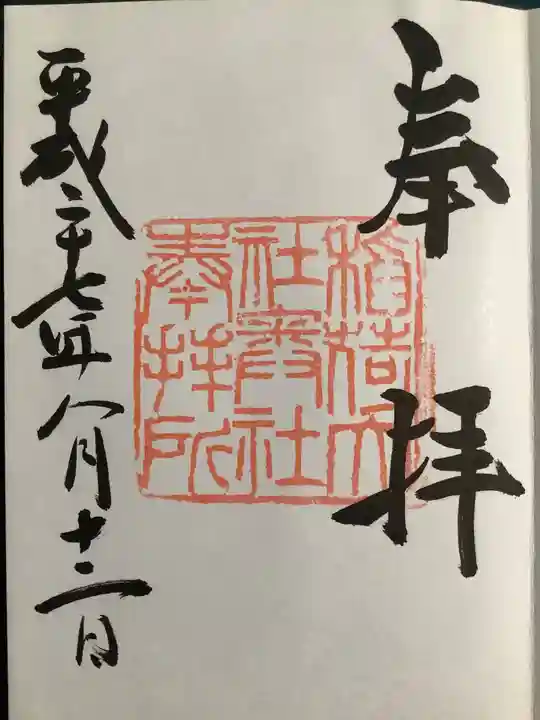 奉拝
稲荷大
社奥社
奉拝所
平成二十七年八月十二日